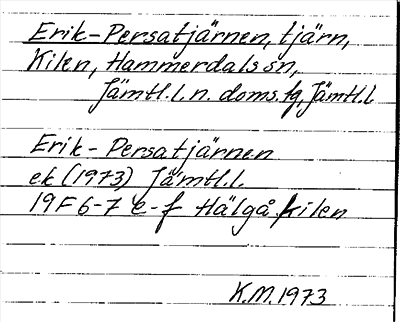 Erik-Persatjärnen, tjärn,
Kilen, Hammerdals sn,
Jämtl.l.n. doms.tg, Jämtl.l
Erik-Persatjärnen
ek (1973) Jämtl.l.
19F 6-7 e-f Hälgå.kilen
K.M.1973